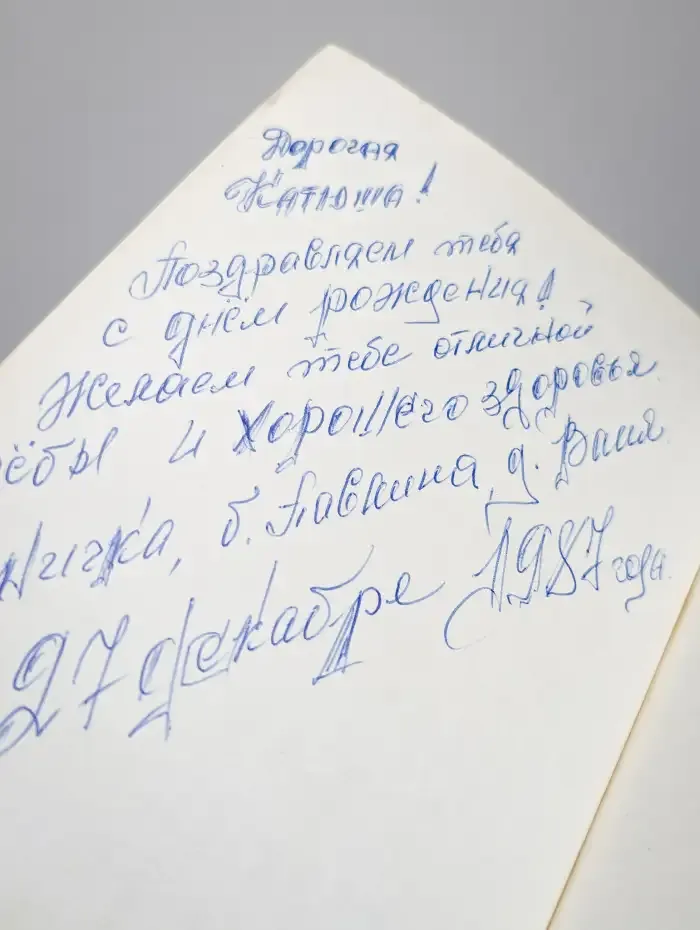 Дорогая
Катюша!
Поздравляем тебя
с днём рождения!
Желаем тебе отличной
чёбы и хорошего здоровья.
б. Павлина, д. Ваня
27 декабря 1987 года.